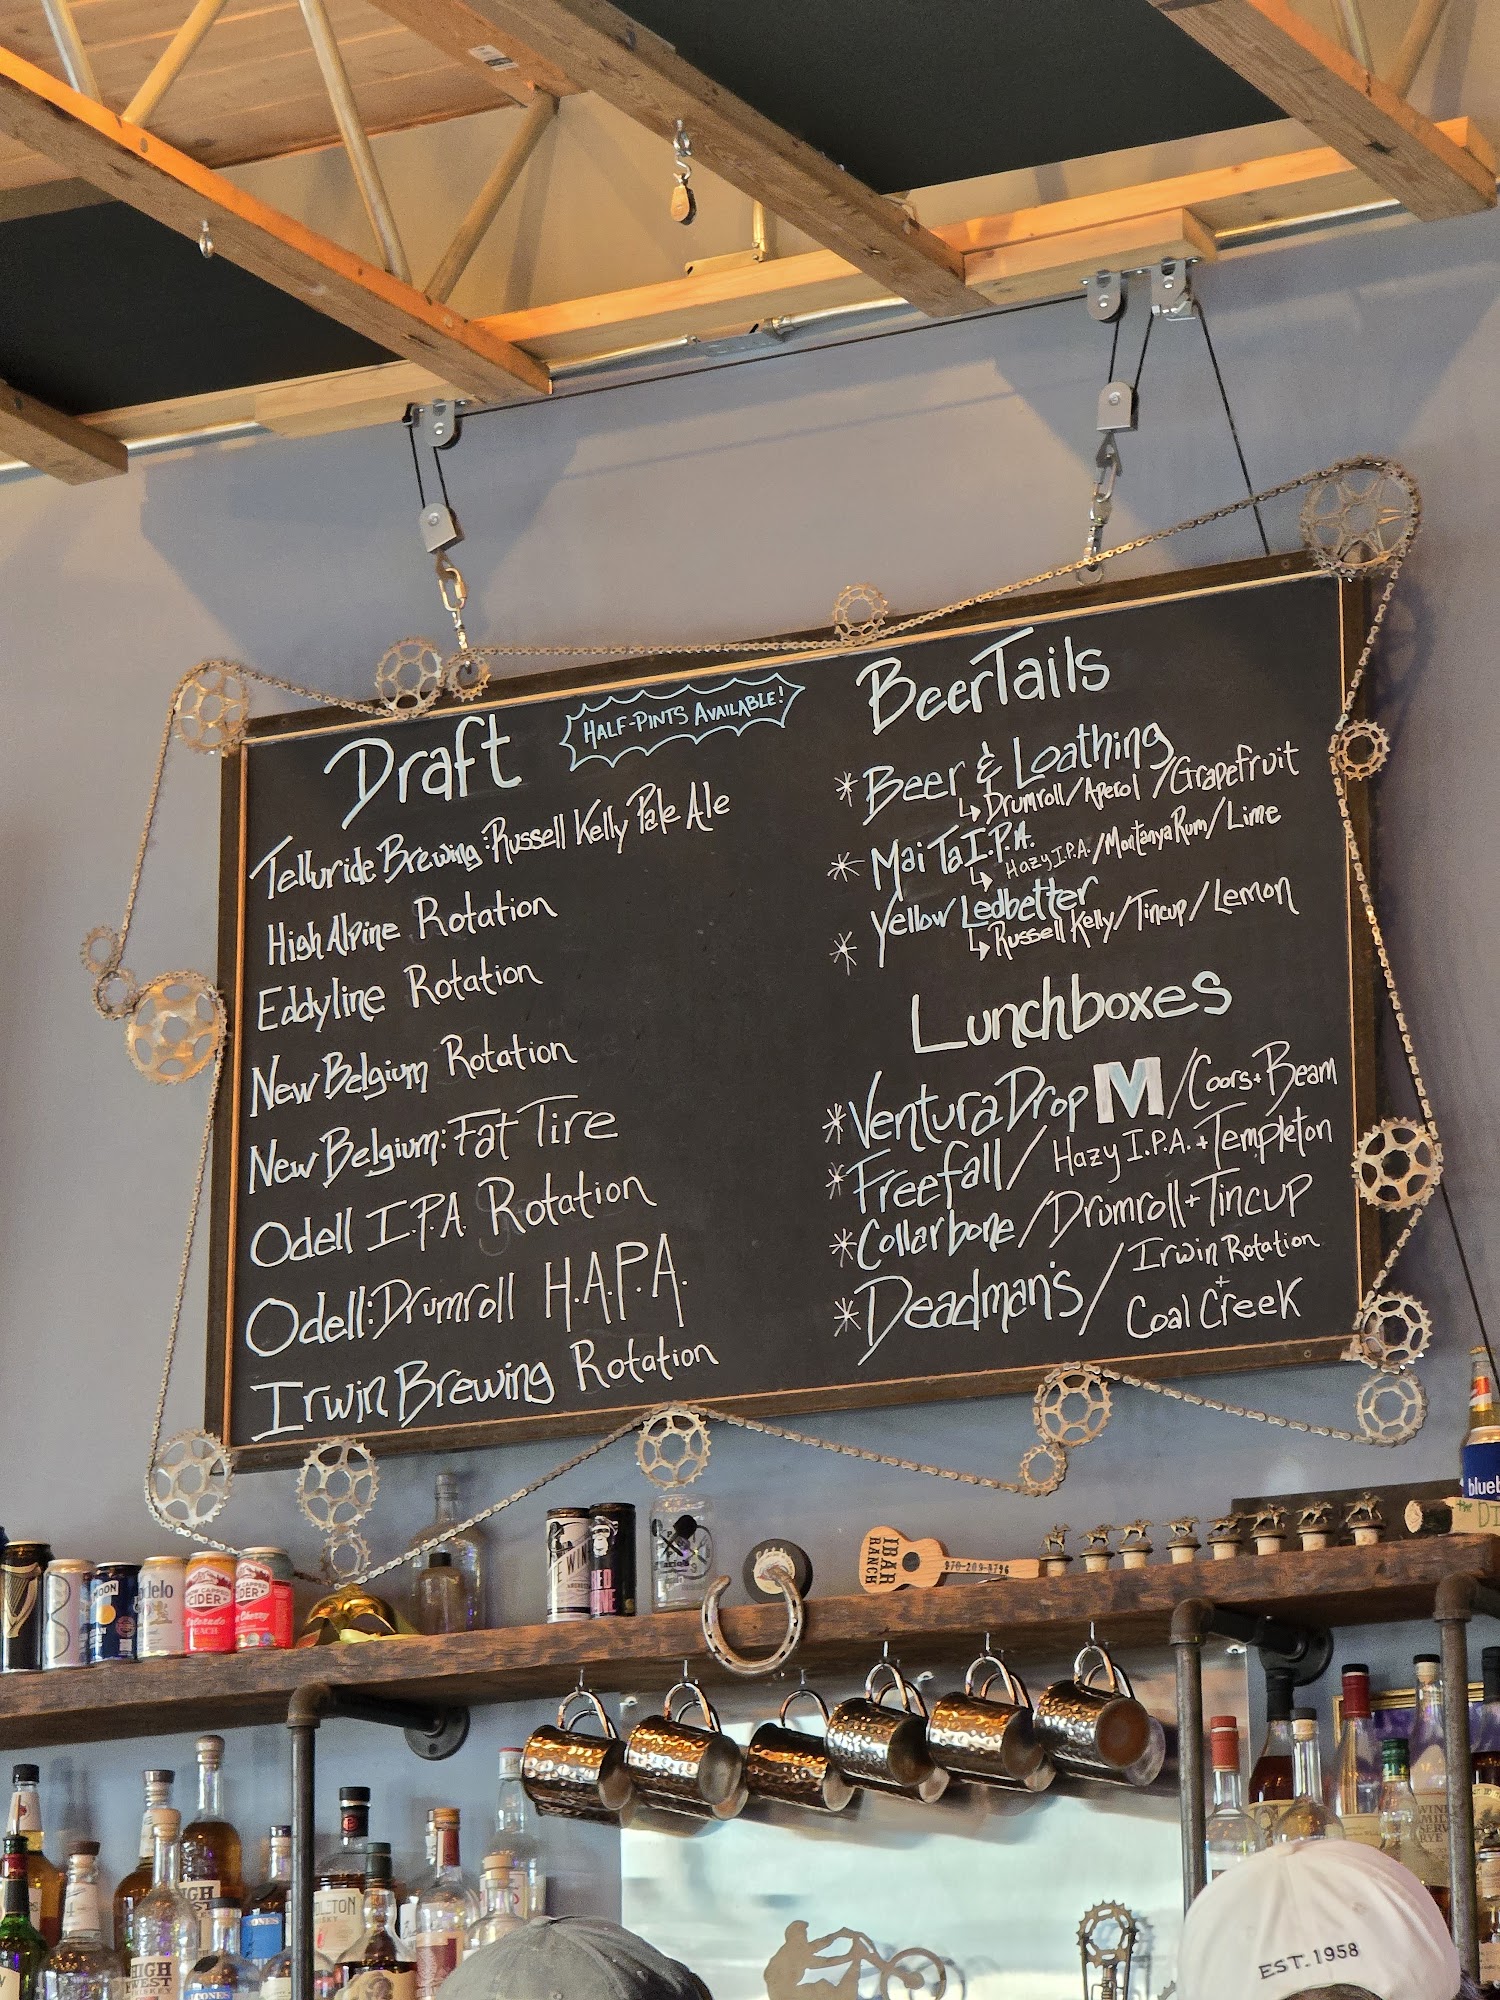 Draft
HALF-PINTS AVAILABLE!
Telluride Brewing: Russell Kelly Pale Ale
High Alpine Rotation
Eddyline Rotation
New Belgium Rotation
New Belgium: Fat Tire
Odell I.P.A. Rotation
Odell: Drumroll H.A.P.A.
Irwin Brewing Rotation
BeerTails
* Beer & Loathing
↳ Drumroll/Aperol/Grapefruit
* Mai Ta I.P.A.
↳ Hazy I.P.A./Montanya Rum/Lime
* Yellow Ledbetter
↳ Russell Kelly/Tincup/Lemon
Lunchboxes
* Ventura Drop M/Coors + Beam
* Freefall/Hazy I.P.A. + Templeton
* Collarbone/Drumroll + Tincup
* Deadman's/Irwin Rotation
+
Coal Creek
IBAR
RANCH
970-209-9796
CIDER
PEACH
CIDER
Cherry
EST. 1958